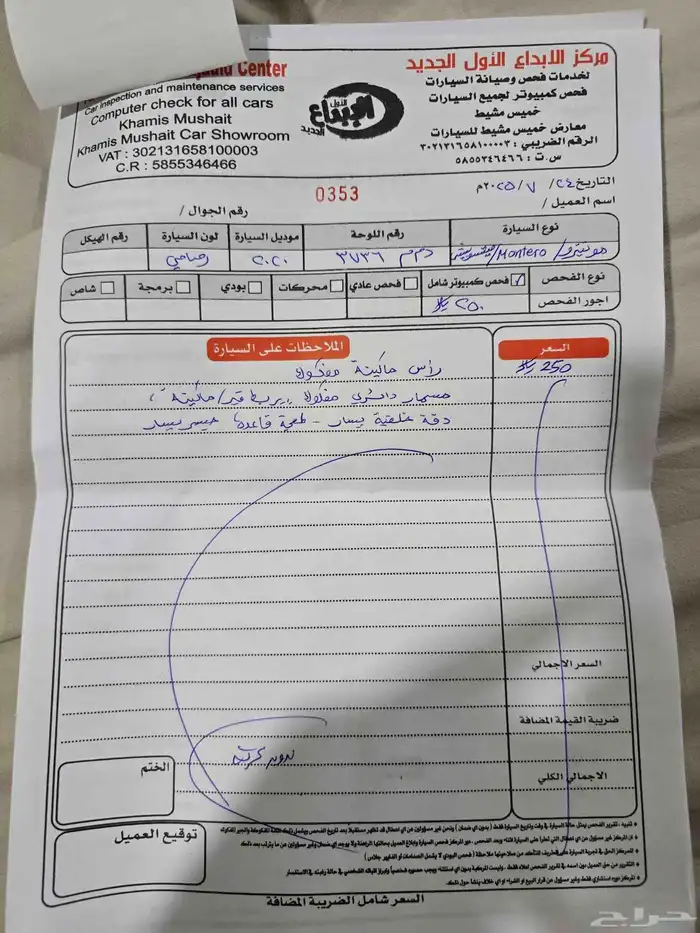 uald Center
Car Inspection and maintenance services
Computer check for all cars
Khamis Mushait
Khamis Mushait Car Showroom
VAT : 302131658100003
C.R : 5855346466
الإبداع
الأول
الجديد
مركز الابداع الأول الجديد
لخدمات فحص وصيانة السيارات
فحص كمبيوتر لجميع السيارات
خميس مشيط
معارض خميس مشيط للسيارات
الرقم الضريبي : ٣٠٢١٣١٦٥٨١٠٠٠٠٣
س.ت : ٥٨٥٥٣٤٦٤٦٦
التاريخ ٢٤ / ٧ / ٢٠٢٥م
0353
اسم العميل /
رقم الجوال /
نوع السيارة
رقم اللوحة
موديل السيارة
لون السيارة
رقم الهيكل
مونتيرو / Montero / ميتسوبيشي
٣٧٣٦
٢٠٢٠
رصاصي
نوع الفحص
فحص كمبيوتر شامل
فحص عادي
محركات
بودي
برمجة
شاص
اجور الفحص
٢٥٠
السعر
الملاحظات على السيارة
250
رأس ماكينة مفكوك
مسمار دائري مفكوك "يربط قير/ماكينة"
دقة خلفية يسار - طعجة قاعدة جسر يسار
السعر الاجمالي
ضريبة القيمة المضافة
الاجمالي الكلي
بدون تجربة
الختم
توقيع العميل
السعر شامل الضريبة المضافة
حراج